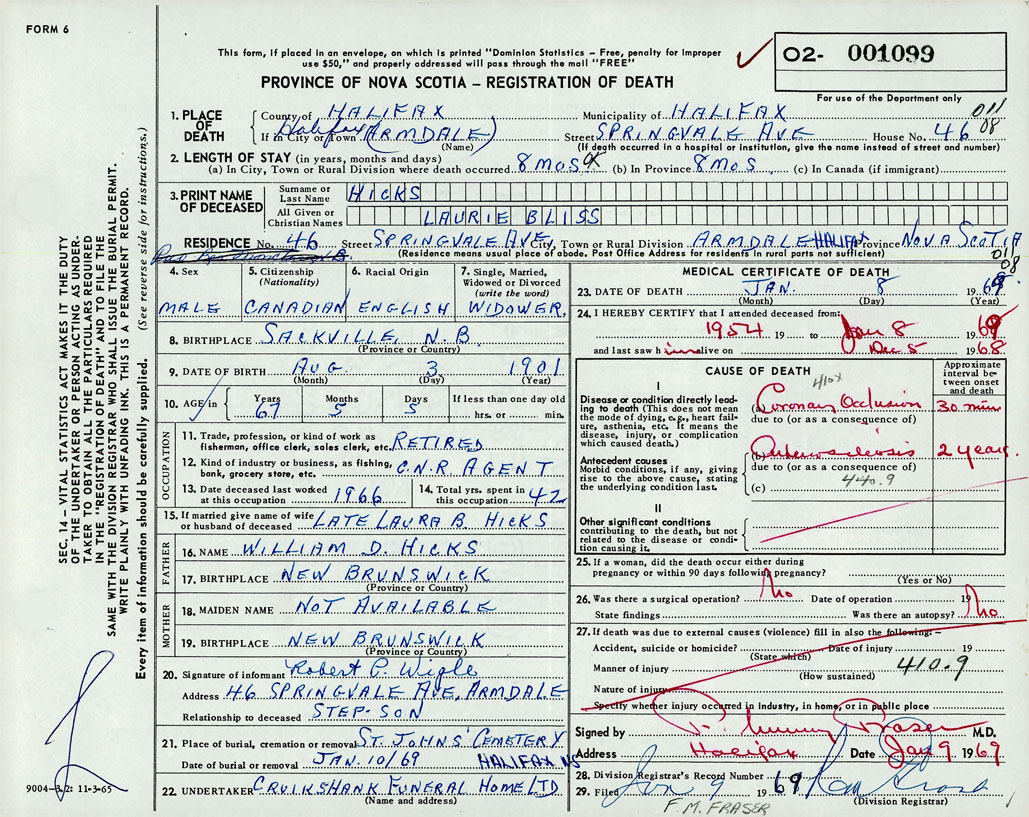 FORM 6
This form, if placed in an envelope, on which is printed "Dominion Statistics – Free, penalty for improper
use $50," and properly addressed will pass through the mail "FREE"
O2- 001099
PROVINCE OF NOVA SCOTIA – REGISTRATION OF DEATH
For use of the Department only
1. PLACE OF DEATH
County of HALIFAX Municipality of HALIFAX 011
If in City or Town Halifax (ARMDALE) Street SPRINGVALE AVE House No. 46 08
(Name) (If death occurred in a hospital or institution, give the name instead of street and number)
2. LENGTH OF STAY (in years, months and days)
(a) In City, Town or Rural Division where death occurred 8 MOS (b) In Province 8 MOS (c) In Canada (if immigrant)
3. PRINT NAME OF DECEASED
Surname or Last Name HICKS
All Given or Christian Names LAURIE BLISS
RESIDENCE No. 46 Street SPRINGVALE AVE City, Town or Rural Division ARMDALE HALIFAX Province NOVA SCOTIA
(Residence means usual place of abode. Post Office Address for residents in rural parts not sufficient)
011
08
4. Sex
MALE
5. Citizenship
(Nationality)
CANADIAN
6. Racial Origin
ENGLISH
7. Single, Married,
Widowed or Divorced
(write the word)
WIDOWER.
8. BIRTHPLACE SACKVILLE, N.B.
(Province or Country)
9. DATE OF BIRTH AUG. 3 1901
(Month) (Day) (Year)
10. AGE in Years Months Days If less than one day old
67 5 5 hrs. or min.
OCCUPATION
11. Trade, profession, or kind of work as
fisherman, office clerk, sales clerk, etc. RETIRED
12. Kind of industry or business, as fishing,
bank, grocery store, etc. C.N.R AGENT
13. Date deceased last worked
at this occupation 1966
14. Total yrs. spent in
this occupation 42
15. If married give name of wife
or husband of deceased LATE LAURA B. HICKS
FATHER
16. NAME WILLIAM D. HICKS
17. BIRTHPLACE NEW BRUNSWICK
(Province or Country)
MOTHER
18. MAIDEN NAME NOT AVAILABLE
19. BIRTHPLACE NEW BRUNSWICK
(Province or Country)
20. Signature of informant Robert P. Wigle
Address 46 SPRINGVALE AVE, ARMDALE
Relationship to deceased STEP-SON
21. Place of burial, cremation or removal ST. JOHNS' CEMETERY
Date of burial or removal JAN. 10/69 HALIFAX NS
22. UNDERTAKER CRUIKSHANK FUNERAL HOME LTD
(Name and address)
MEDICAL CERTIFICATE OF DEATH
23. DATE OF DEATH JAN. 8 1969
(Month) (Day) (Year)
24. I HEREBY CERTIFY that I attended deceased from:
1954 19 to Jan 8 1969
and last saw him alive on Dec 5 1968
CAUSE OF DEATH
Approximate
interval be-
tween onset
and death
410x
I
Disease or condition directly lead-
ing to death (This does not mean
the mode of dying, e.g., heart fail-
ure, asthenia, etc. It means the
disease, injury, or complication
which caused death.)
(a) Coronary Occlusion 30 mins
due to (or as a consequence of)
Antecedent causes
Morbid conditions, if any, giving
rise to the above cause, stating
the underlying condition last.
(b) Arteriosclerosis 2 years.
due to (or as a consequence of)
(c) 440.9
II
Other significant conditions
contributing to the death, but not
related to the disease or condi-
tion causing it.
25. If a woman, did the death occur either during
pregnancy or within 90 days following pregnancy?
(Yes or No)
26. Was there a surgical operation? No Date of operation 19
State findings Was there an autopsy? No
27. If death was due to external causes (violence) fill in also the following: –
Accident, suicide or homicide? Date of injury 19
(State which)
Manner of injury 410.9
(How sustained)
Nature of injury
Specify whether injury occurred in industry, in home, or in public place
Signed by Fraser M.D.
Address Halifax Date Jan 9 1969
28. Division Registrar's Record Number
29. Filed Jan 9 1969
(Division Registrar)
F.M. FRASER
SEC. 14 – VITAL STATISTICS ACT MAKES IT THE DUTY
OF THE UNDERTAKER OR PERSON ACTING AS UNDER-
TAKER TO OBTAIN ALL THE PARTICULARS REQUIRED
IN THE "REGISTRATION OF DEATH" AND TO FILE THE
SAME WITH THE DIVISION REGISTRAR WHO SHALL ISSUE THE BURIAL PERMIT.
WRITE PLAINLY WITH UNFADING INK. THIS IS A PERMANENT RECORD.
Every item of information should be carefully supplied. (See reverse side for instructions.)
9004-3.2: 11-3-65